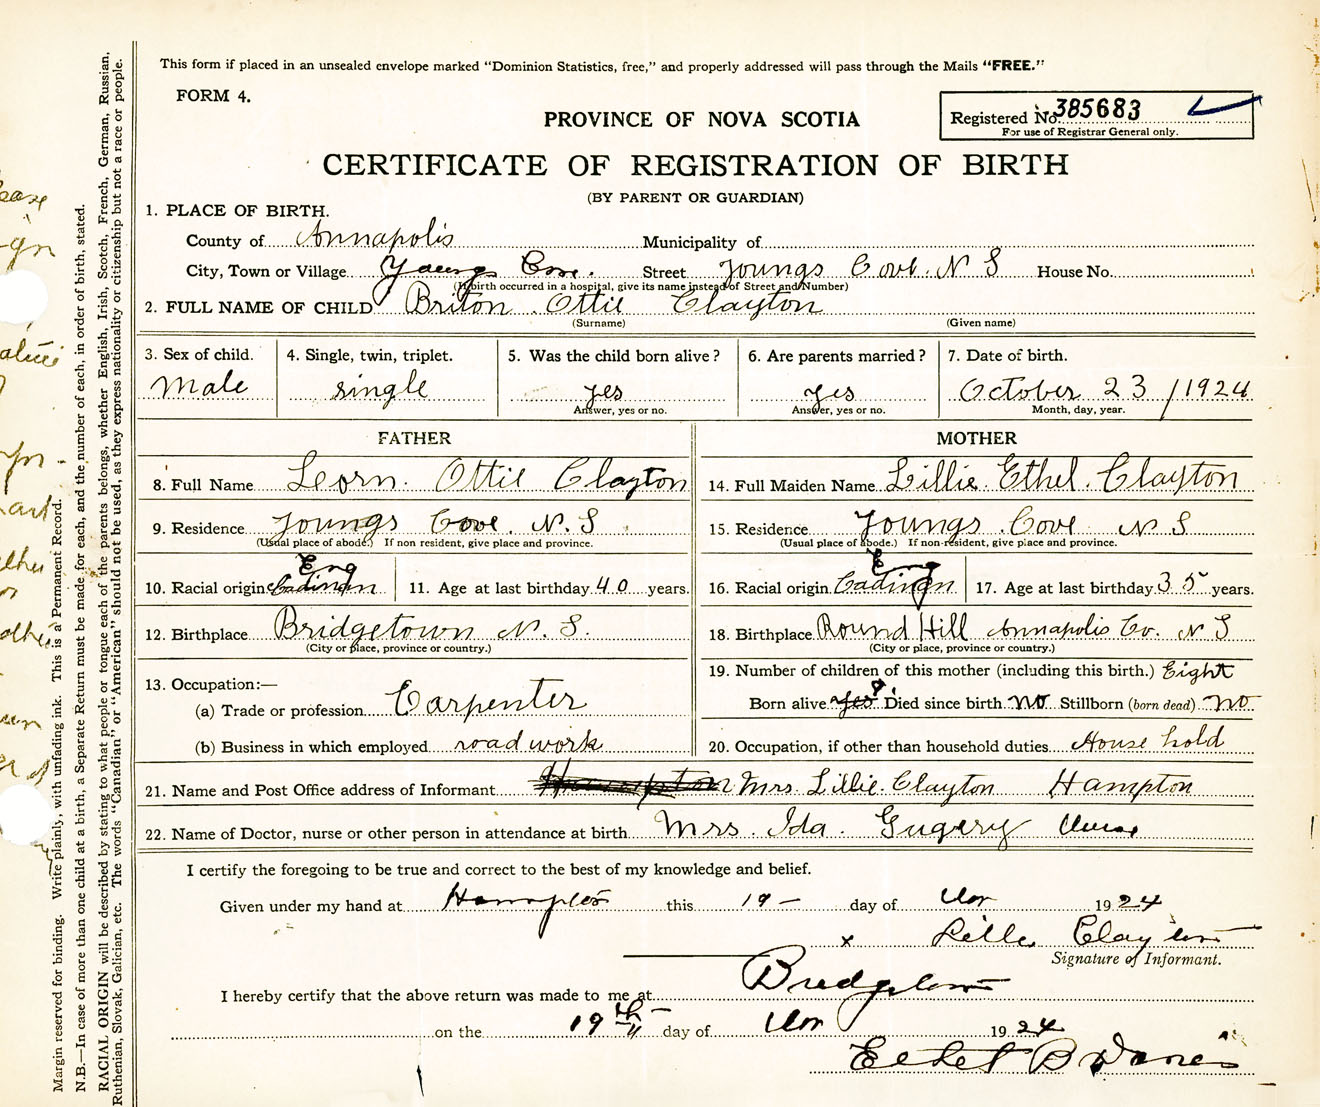 This form if placed in an unsealed envelope marked "Dominion Statistics, free," and properly addressed will pass through the Mails "FREE."
FORM 4.
Registered No. 385683
For use of Registrar General only.
PROVINCE OF NOVA SCOTIA
CERTIFICATE OF REGISTRATION OF BIRTH
(BY PARENT OR GUARDIAN)
1. PLACE OF BIRTH.
County of Annapolis Municipality of
City, Town or Village Youngs Cove. Street Youngs Cove. N S House No.
(If birth occurred in a hospital, give its name instead of Street and Number)
2. FULL NAME OF CHILD Briton Ottie Clayton
(Surname) (Given name)
3. Sex of child. 4. Single, twin, triplet. 5. Was the child born alive? 6. Are parents married? 7. Date of birth.
Male single yes yes October 23 / 1924
Answer, yes or no. Answer, yes or no. Month, day, year.
FATHER MOTHER
8. Full Name Lorn. Ottie Clayton 14. Full Maiden Name Lillie Ethel Clayton
9. Residence Youngs Cove. N. S 15. Residence Youngs Cove N S
(Usual place of abode.) If non resident, give place and province. (Usual place of abode.) If non-resident, give place and province.
Eng Eng
10. Racial origin 11. Age at last birthday 40 years. 16. Racial origin 17. Age at last birthday 35 years.
12. Birthplace Bridgetown N. S. 18. Birthplace Round Hill Annapolis Co. N S
(City or place, province or country.) (City or place, province or country.)
13. Occupation:— 19. Number of children of this mother (including this birth.) Eight
(a) Trade or profession Carpenter Born alive yes Died since birth No Stillborn (born dead) No
(b) Business in which employed road work 20. Occupation, if other than household duties House hold
21. Name and Post Office address of Informant Hampton Mrs. Lillie Clayton Hampton
22. Name of Doctor, nurse or other person in attendance at birth Mrs. Ida Nurse
I certify the foregoing to be true and correct to the best of my knowledge and belief.
Given under my hand at Hampton this 19 — day of Nov 1924
x Lillie Clayton
Signature of Informant.
I hereby certify that the above return was made to me at Bridgetown
on the 19th day of Nov 1924
B
Margin reserved for binding. Write plainly, with unfading ink. This is a Permanent Record.
N.B.—In case of more than one child at a birth, a Separate Return must be made for each, and the number of each, in order of birth, stated.
RACIAL ORIGIN will be described by stating to what people or tongue each of the parents belongs, whether English, Irish, Scotch, French, German, Russian,
Ruthenian, Slovak, Galician, etc. The words "Canadian" or "American" should not be used, as they express nationality or citizenship but not a race or people.